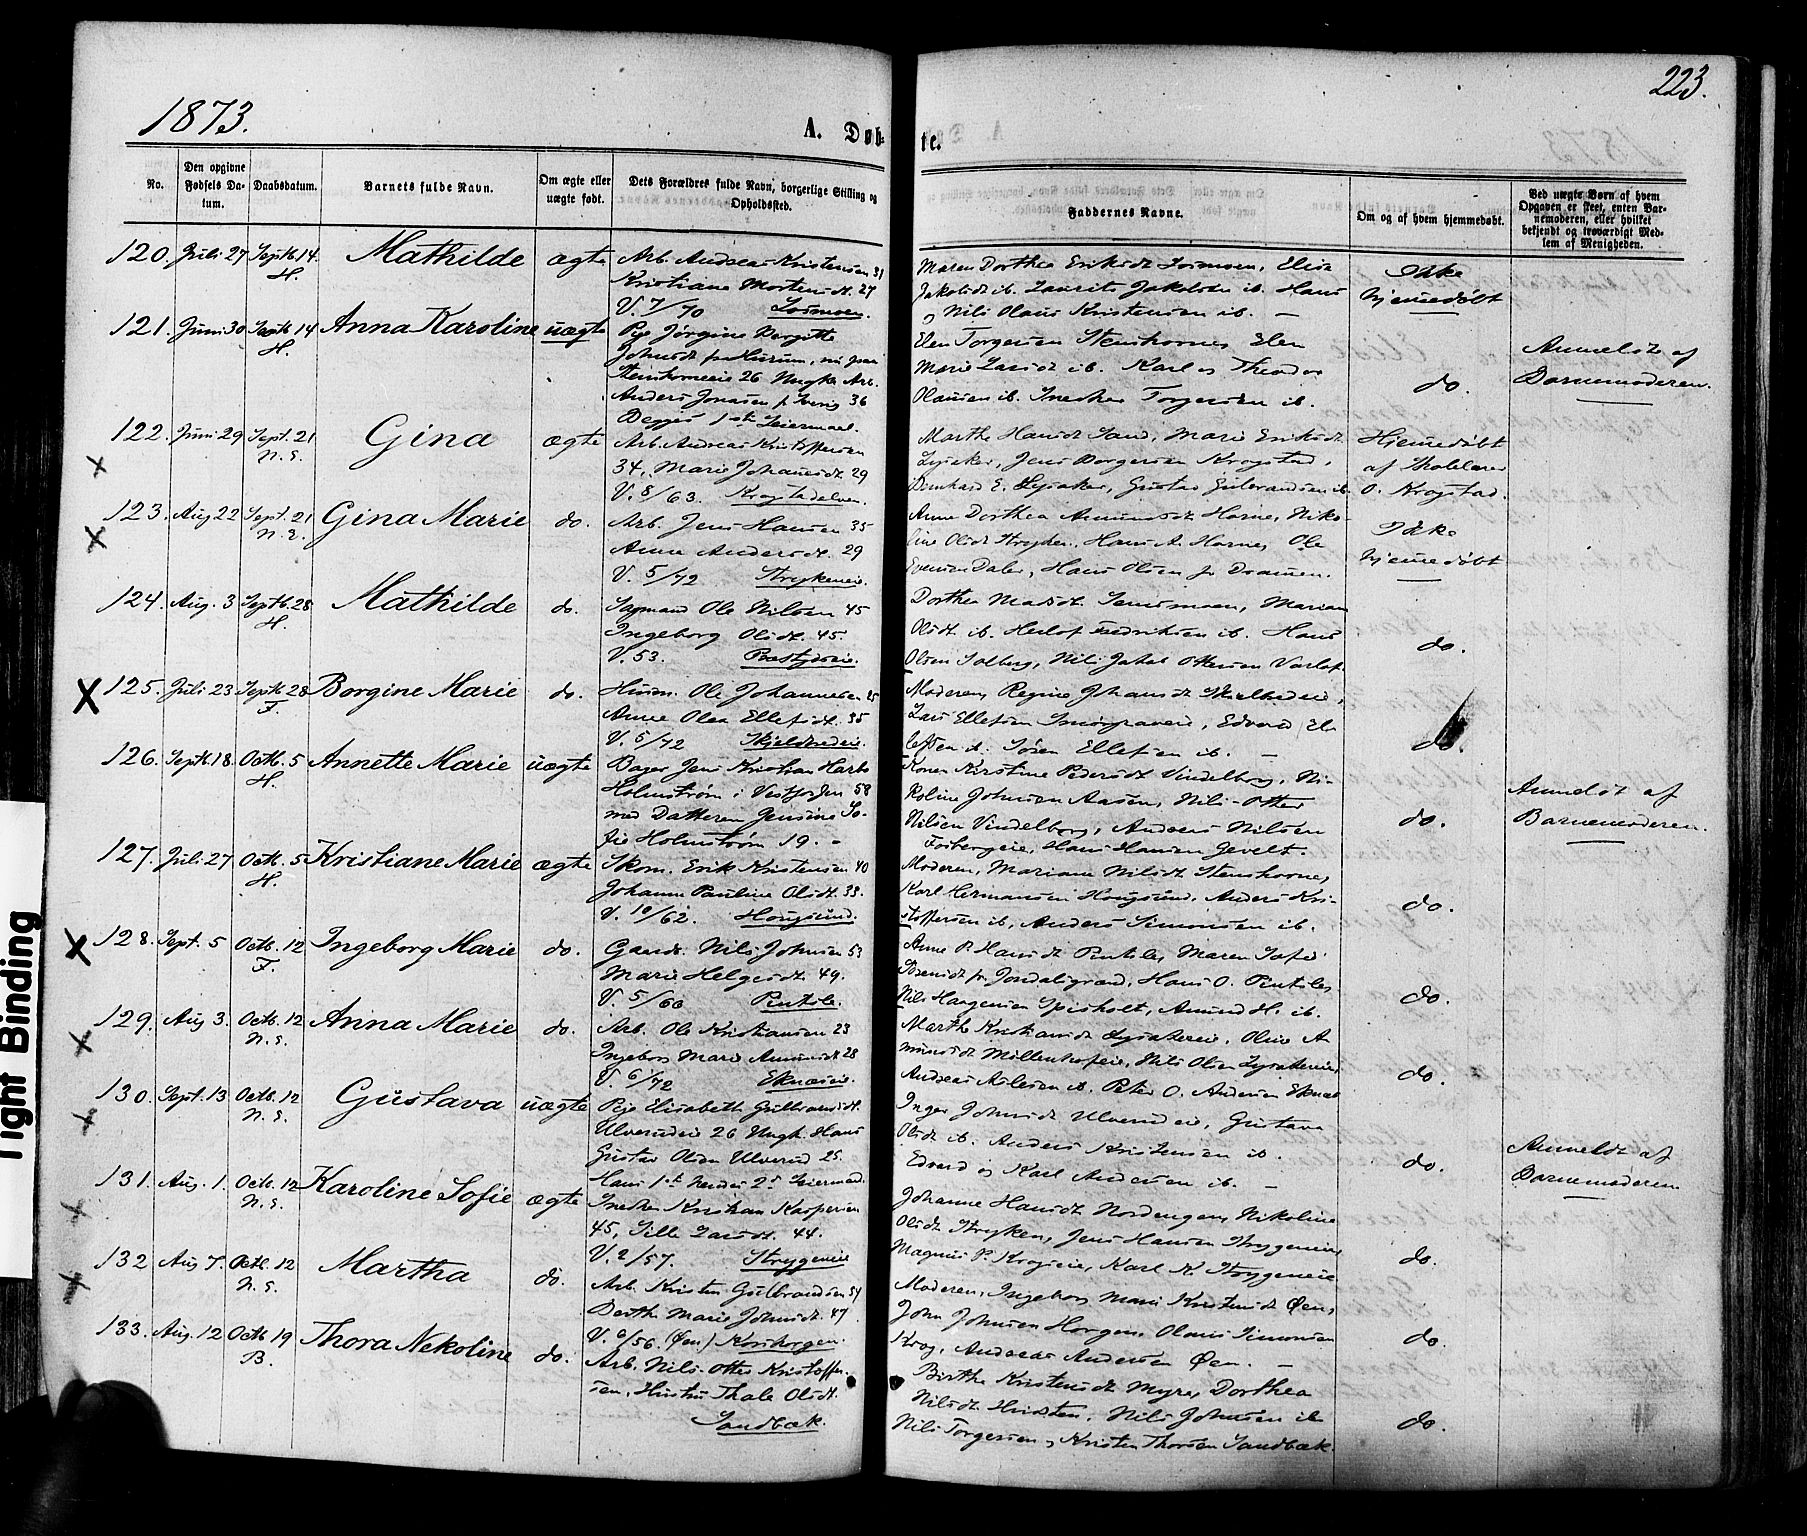 1873.
A. Døb-
te.
223.
No.
Den opgivne Fødsels Datum.
Daabsdatum.
Barnets fulde Navn.
Om ægte eller uægte født.
Dets Forældres fulde Navn, borgerlige Stilling og Opholdssted.
Faddernes Navne.
Om og af hvem hjemmedøbt.
Ved uægte Børn af hvem Opgaven er skeet, enten Barnemoderen, eller hvilket bekjendt og troværdigt Medlem af Menigheden.
120. Juli 27 Septb. 14 H. Mathilde ægte
Arb. Andreas Kristensen 31
Kristiane Mortensdt. 27
V. 7/70
Maren Dorthea Eriksdt
Jakobsdt ib. Laurits Jakobsen ib. Hans
og Nils Olaus Kristensen ib. —
Ikke
hjemmedøbt
121. Juni 30 Septb. 14 H. Anna Karoline uægte
Pige Jørgine Bergitte
Johnsdt fra Hurum, nu paa
Stenshorneeie 26 Ungk. Arb.
Anders Jonasen fr. Sverig 36
Begges 1ste Leiermaal.
Elen Torgersen Stenshornes, Elen
Marie Larsdt ib. Karl og Theodor
Olausen ib. Snedker Torgersen ib.
do
Anmeldt af
Barnemoderen.
122. Juni 29 Sept. 21 N. E. Gina ægte
Arb. Andreas Kristoffersen
34, Marie Johannesdt 29
V. 8/63. Krogstadelven.
Marthe Hansdt Sand, Marie Eriksdt
Lysaker, Jens Borgersen Krogstad,
Bernhard E. Lysaker, Gustav Gulbrandsen ib.
Hjemmedøbt
af Skolelærer
O. Krogstad.
123. Aug 22 Sept. 21 N. E. Gina Marie do.
Arb. Jens Hansen 35
Anne Andersdt. 29
V. 5/72 Strykeneie.
Anne Dorthea Amundsdt Horne, Niko-
line Olsdt Stryken, Hans A. Hornes, Ole
Evensen Daler, Hans Olsen fr Dramen.
Ikke
hjemmedøbt
124. Aug. 3 Septb. 28 H. Mathilde do.
Sagmand Ole Nilsen 45
Ingeborg Olsdt. 45.
V. 53.
Dorthea Madsdt. Marian
Olsdt ib. Herlof Fredriksen ib. Hans
Olsen Solberg, Nils Jakob
do.
125. Juli 23 Septb. 28 F. Borgine Marie do.
Husm. Ole Johannesen 25
Anne Olea Ellefsdt. 35
V. 5/72 Skjeldredeie.
Moderen, Regine Johansdt
Lars Ellefsen Smørgraveie, Edvard El-
lefsen ib. Søren Ellefsen ib. —
do.
126. Septb. 18 Octb. 5 H. Annette Marie uægte
Bager Jens Kristian Harbo
Holmstrøm i Vestfossen 58
med Datteren Jensine So-
fie Holmstrøm 19. —
Konen Kirstine Pedersdt Vindelborg, Ni-
koline Johnsen Aasen, Nils Otter
Nilsen Vindelborg, Anders Nilsen
Fosbergeie, Hans Hansen Gevelt.
do.
Anmeldt af
Barnemoderen.
127. Juli 27 Octb. 5 H. Kristiane Marie ægte
Skom. Erik Kristensen 40
Johanne Pauline Olsdt. 33.
V. 10/62. Hougsund.
Moderen, Mariane Nilsdt Stenshornes,
Karl Hermansen Hougsund, Anders Kri-
stoffersen ib., Anders Simonsen ib.
do.
128. Sept. 5 Octb. 12 F. Ingeborg Marie do.
Gaardb. Nils Johnsen 53
Marie Helgesdt 49.
V. 5/60
Anne P. Hansdt Maren Sofie
Sørensdt fr. Jondalsgrænd, Hans O.
Nils Haagensen Spisholt, Amund H. ib.
do.
129. Aug 3. Octb. 12 N. E. Anna Marie do.
Arb. Ole Kristiansen 23
Ingeborg Marie Amundsdt 28
V. 6/72 Eknæseie.
Marthe Kristiansdt Lysakereie, Oline A-
mundsdt Møllenhofeie, Nils Olsen Lysakereie,
Andreas Aslesen ib. Peter O. Andersen Eknæs
do.
130. Sept. 13 Octb. 12 N. E. Gustava uægte
Pige Elisabeth Gulbrandsdt.
Ulverudeie 26 Ungk. Hans
Gustav Olsen Ulverud 25.
Hans 1st hendes 2d Leiermaal.
Inger Johnsdt Ulverudeie, Gustava
Olsdt ib. Anders Kristensen ib.
Edvard og Karl Andersen ib. —
do.
Anmeldt af
Barnemoderen.
131. Aug. 1. Octb. 12 N. E. Karoline Sofie ægte
Snedker Kristian Kaspersen
45, Sille Larsdt. 44.
V. 2/57. Strygeneie
Johanne Hansdt Nordengen, Nikoline
Olsdt Stryken, Jens Hansen Strygeneie
Magnus P. Krogseie, Karl K. Strygeneie
do.
132 Aug 7. Octb. 12 N. E. Martha do.
Arb. Kristen Gulbrandsen 54
Berthe Marie Johnsdt. 47
V. 6/56. (Øen) Korshorgen.
Moderen, Ingeborg Marie Kristensdt Øen,
John Johnsen Horgen, Olaus Simonsen
Krog, Andreas Andersen Øen. —
do.
133. Aug. 12 Octb 19 B. Thora Nekoline do.
Arb. Nils Otter Kristoffer-
sen, Hustru Thale Olsdt.
Sandbæk.
Birthe Kristensdt Myre, Dorthea
Nilsdt Nils Johnsen ib
Nils Torgersen, Kristen Thorsen Sandbæk.
do.
Tight Binding